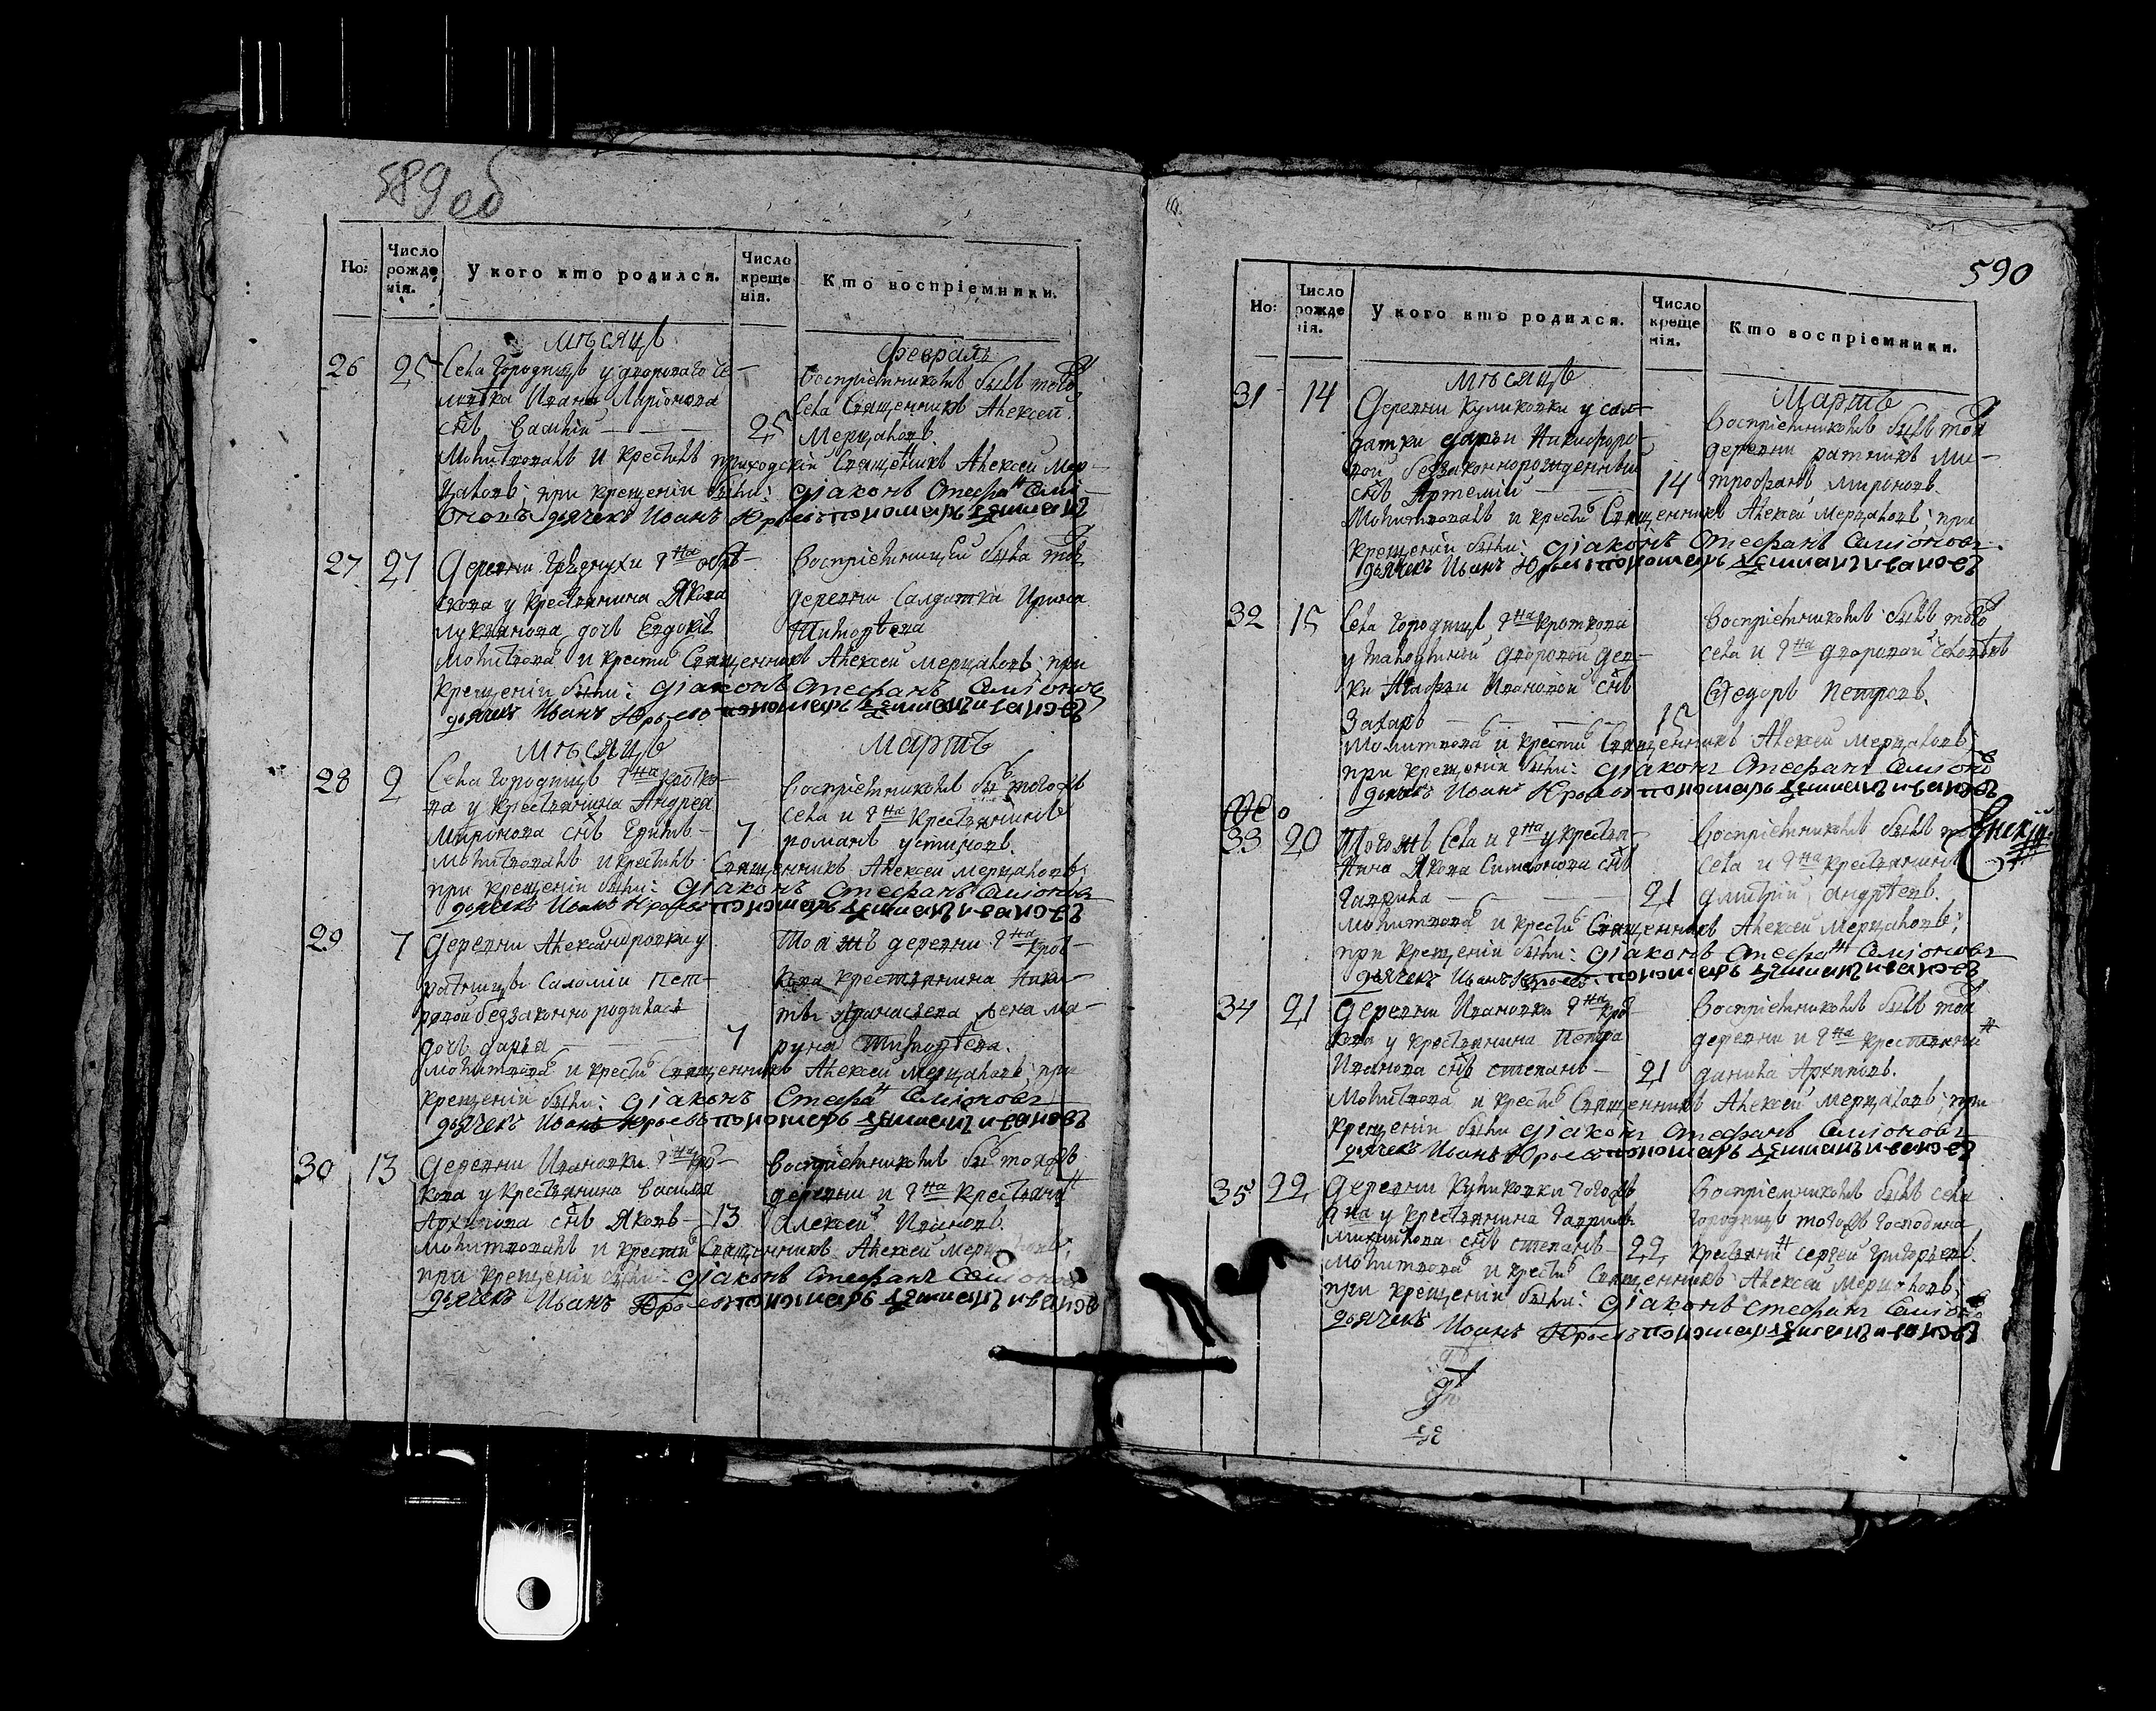 589 об
Но: Число рожденія. У кого кто родился. Число крещенія. Кто воспріемники.
мѣсяцъ февраль
26 25 Села Городищъ у двороваго че-
ловѣка Ивана Ларіонова
снъ Василій 25
воспріемникомъ былъ того
села Священникъ Алексей
Мерцаловъ
Молитвовалъ и крестилъ приходскій Священникъ Алексей Мер-
цаловъ; при крещеніи были: діаконъ Стефанъ Симі-
оновъ дьячекъ Иванъ Юрьевъ пономарь
27 27 Деревни
у крестьянина Якова
Лукьянова дочь Евдокія
воспріемницей была
деревни Салдатка Ирина
Тимофѣева
молитвова и крести Священникъ Алексей Мерцаловъ; при
крещеніи были: діаконъ Стефанъ Симіоновъ
дьячекъ Иванъ Юрьевъ пономарь
мѣсяцъ мартъ
28 2 Села Городищъ гна Кротко-
ва у крестьянина Андрея
Миронова снъ 7
воспріемникомъ бы тогожъ
села и гна крестьянинъ
романъ устиновъ.
молитвовалъ и крестилъ Священникъ Алексей Мерцаловъ;
при крещеніи были: діаконъ Стефанъ Симіоновъ
дьячекъ Иванъ Юрьевъ пономарь
29 7 Деревни Александровки у
ратницы Саломіи Пет-
ровой беззаконно родилась
дочь дарья 7
Тоя жъ деревни гна Крот-
кова крестьянина Ники-
ты Афанасьева жена ма-
рфа Тимофѣева.
молитвова и крести Священникъ Алексей Мерцаловъ; при
крещеніи были: діаконъ Стефанъ Симіоновъ
дьячекъ Иванъ Юрьевъ пономарь
30 13 Деревни Ивановки гна Кро-
кова у крестьянина Василья
Архипова снъ Яковъ 13
воспріемникомъ бы тояжъ
деревни и гна крестьянинъ
Алексей Ивановъ.
молитвовалъ и крестилъ Священникъ Алексей Мерцаловъ;
при крещеніи были: діаконъ Стефанъ Симіоновъ
дьячекъ Иванъ Юрьевъ пономарь
590
Но: Число рожденія. У кого кто родился. Число крещенія. Кто воспріемники.
мѣсяцъ Мартъ
31 14 Деревни Куликовки у сал-
датки дарьи Никифоро-
вой беззаконнорожденный
снъ Артемій 14
воспріемникомъ былъ той
деревни ратникъ Ми-
трофанъ Мироновъ.
Молитвовалъ и крести Священникъ Алексей Мерцаловъ; при
крещеніи были: діаконъ Стефанъ Симіоновъ
дьячекъ Иванъ Юрьевъ пономарь
32 15 Села Городищъ гна Кроткова
дворовой дев-
ки Агафьи Ивановой снъ
Захаръ 15
воспріемникомъ былъ того
села и гна дворовой человѣкъ
Ѳедоръ Петровъ.
молитвова и крести Священникъ Алексей Мерцаловъ
при крещеніи были: діаконъ Стефанъ Симіоно
дьячекъ Иванъ Юрьевъ пономарь
33 20 Того жъ села и гна у крестья-
нина Якова Симеонова снъ
Гаврила 21
воспріемникомъ былъ
села и гна крестьянинъ
дмитрій андрѣевъ.
молитвова и крести Священникъ Алексей Мерцаловъ;
при крещеніи были: діаконъ Стефанъ Симіоновъ
дьячекъ Иванъ Юрьевъ пономарь
34 21 Деревни Ивановки гна Кро-
кова у крестьянина Петра
Иванова снъ степанъ 21
воспріемникомъ былъ той
деревни и гна крестьянинъ
данила Архиповъ.
Молитвова и крести Священникъ Алексей Мерцаловъ; при
крещеніи были діаконъ Стефанъ Симіоновъ
дьячекъ Иванъ Юрьевъ пономарь
35 22 Деревни Куликовки тогожъ
гна у крестьянина Гаврилы
снъ степанъ 22
воспріемникомъ былъ села
Городищъ тогожъ господина
крестьянинъ сергей григорьевъ
молитвова и крести Священникъ Алексей Мерцаловъ;
при крещеніи были: діаконъ Стефанъ Симіоно
дьячекъ Иванъ Юрьевъ пономарь